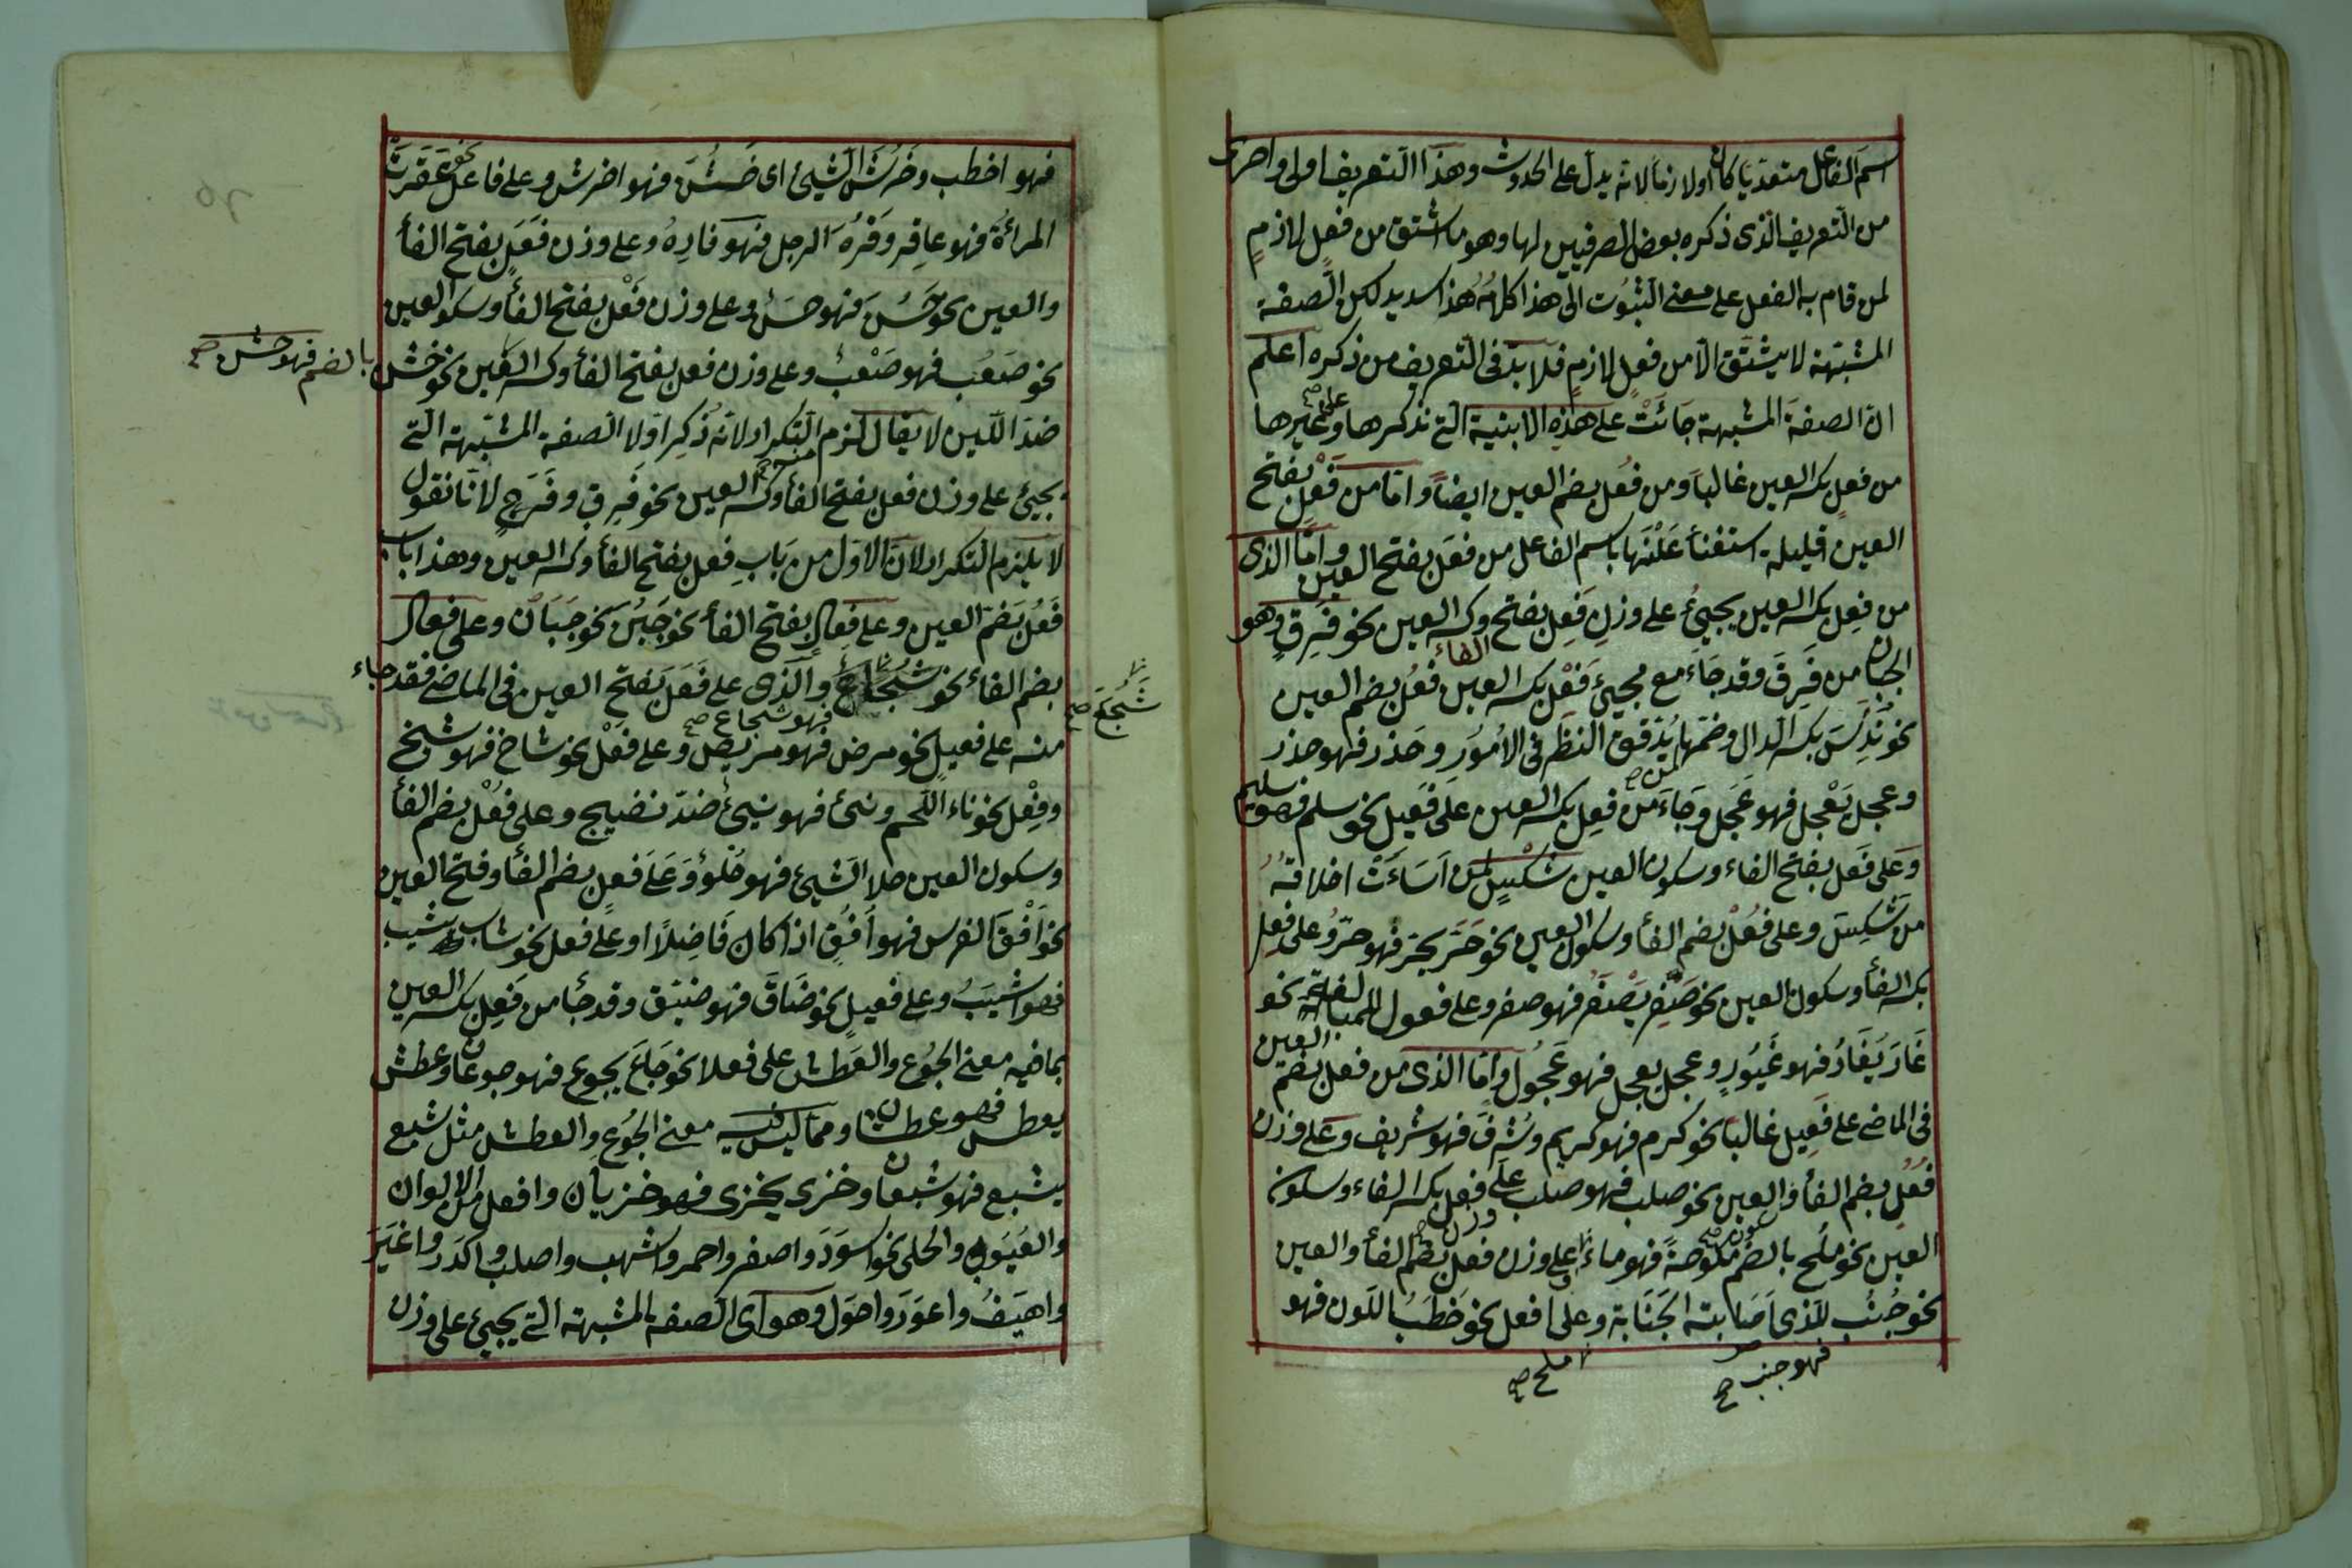 اسم الفاعل متعديا كان اولا زما لانه يدل على الحدوث وهذا التعريف اولى واحرى
من التعريف الذى ذكره بعض الصرفيين لها وهو ما اشتق من فعل لازم
لمن قام به الفعل على معنى الثبوت الى هذا كلامه هذا سديد لكن الصفة
المشبهة لا يشتق الا من فعل لازم فلا بد فى التعريف من ذكره اعلم
ان الصفة المشبهة جائت على هذه الابنية التى نذكرها وعلى غيرها
من فعل بكسر العين غالبا ومن فعل بضم العين ايضا واما من فعل بفتح
العين قليلة استغنأ عنها باسم الفاعل من فعل بفتح العين واما الذى
من فعل بكسر العين يجيئ على وزن فعل بفتح الفاء وكسر العين نحو فرق وهو
الجبان من فرق وقد جاء مع مجيئ فعل بكسر العين فعل بضم العين
نحو ندس بكسر الدال وضمها يدقق النظر فى الامور وحذر فهو حذر
وعجل يعجل فهو عجل وجاء من فعل بكسر العين على فعيل نحو سلم فهو سليم
وعلى فعل بفتح الفاء وسكون العين شكس لمن اسائت اخلاقه
من شكس وعلى فعل بضم الفأ وسكون العين نحو حر يحر فهو حر وعلى فعل
بكسر الفأ وسكون العين نحو صفر يصفر فهو صفر وعلى فعول للمبالغة نحو
غار يغار فهو غيور وعجل يعجل فهو عجول واما الذى من فعل بضم العين
فى الماضى على فعيل غالبا نحو كرم فهو كريم وشرف فهو شريف وعلى وزن
فعل بضم الفأ والعين نحو صلب فهو صلب على وزن فعل بكسر الفاء وسكون
العين نحو ملح بالضم ملوحة فهو ماء وعلى وزن فعل بضم الفأ والعين
نحو جنب للذى اصابته الجنابة وعلى افعل نحو خطب اللون فهو
فهو جنب صح
ملح صح
فهو اخطب وخرش الشيئ اى خشن فهو اخرش وعلى فاعل نحو عقرت
المرأة فهو عاقر وفره الرجل فهو فاره وعلى وزن فعل بفتح الفأ
والعين نحو حسن فهو حسن وعلى وزن فعل بفتح الفأ وسكون العين
نحو صعب فهو صعب وعلى وزن فعل بفتح الفأ وكسر العين نحو خشن
بالضم فهو خشن صح
ضد اللين لا يقال لزم التكرار لانه ذكر اولا الصفة المشبهة التى
يجيئ على وزن فعل بفتح الفأ وكسر العين نحو فرق وفرح لانا نقول
لا يلزم التكرار لان الاول من باب فعل بفتح الفأ وكسر العين وهذا باب
فعل بضم العين وعلى فعال بفتح الفأ نحو جبن نحو جبان وعلى فعال
بضم الفاء نحو شجاع والذى على فعل بفتح العين فى الماضى فقد جاء
شجع صح
فهو شجاع صح
منه على فعيل نحو مرض فهو مريض وعلى فعل نحو شاخ فهو شيخ
وفعل نحو ناء اللحم ونئ فهو نيئ ضد نضيج وعلى فعل بضم الفأ
وسكون العين ملا الشيئ فهو ملؤ وعلى فعل بضم الفأ وفتح العين
نحو افق الفرس فهو افق اذا كان فاضلا او على فعل نحو شاب يشيب
فهو اشيب وعلى فعيل نحو ضاق فهو ضيق وقد جأ من فعل بكسر العين
بما فيه معنى الجوع والعطش على فعلان نحو جاع يجوع فهو جوعان وعطش
يعطش فهو عطشان ومما ليس فيه معنى الجوع والعطش مثل شبع
يشبع فهو شبعان وخزى يخزى فهو خزيان وافعل من الالوان
والعيوب والحلى نحو اسود واصفر واحمر واشهب واصلب واكدر واغبر
واهيف واعور واحول وهو اى الصفة المشبهة التى يجيئ على وزن